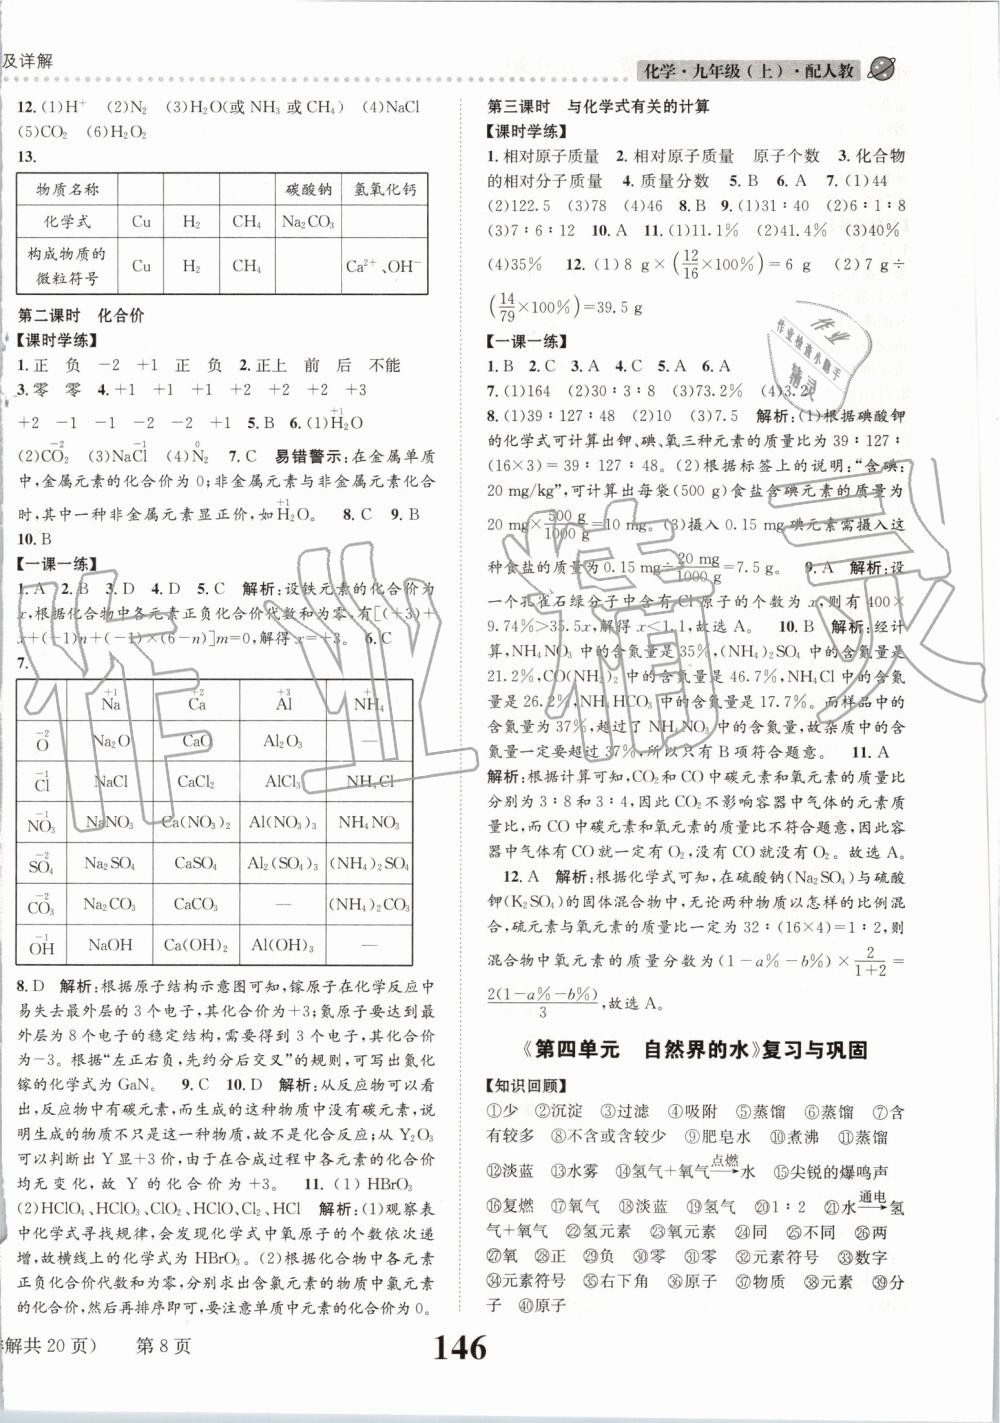 及详解
化学·九年级(上)·配人教
12.(1)H⁺ (2)N₂ (3)H₂O(或 NH₃ 或 CH₄) (4)NaCl
(5)CO₂ (6)H₂O₂
13.
物质名称 碳酸钠 氢氧化钙
化学式 Cu H₂ CH₄ Na₂CO₃
构成物质的微粒符号 Cu H₂ CH₄ Ca²⁺、OH⁻
第二课时 化合价
【课时学练】
1.正 负 -2 +1 正 负 2.正上 前 后 不能
3.零 零 4.+1 +1 +1 +2 +2 +2 +3
+2 -1 -1 -2 -2 +1 5.B 6.(1)H₂O(H上标+1)
(2)CO₂(O上标-2) (3)NaCl(Cl上标-1) (4)N₂(N上标0) 7.C 易错警示:在金属单质
中,金属元素的化合价为 0;非金属元素与非金属元素化合
时,其中一种非金属元素显正价,如H₂O(H上标+1)。 8.C 9.B
10.B
【一课一练】
1.A 2.B 3.D 4.D 5.C 解析:设铁元素的化合价为
x,根据化合物中各元素正负化合价代数和为零,有[(+3)+
x+(-1)n+(-1)×(6-n)]=0,解得 x=+3。 6.C
7.
+1 Na +2 Ca +3 Al +1 NH₄
-2 O Na₂O CaO Al₂O₃ —
-1 Cl NaCl CaCl₂ AlCl₃ NH₄Cl
-1 NO₃ NaNO₃ Ca(NO₃)₂ Al(NO₃)₃ NH₄NO₃
-2 SO₄ Na₂SO₄ CaSO₄ Al₂(SO₄)₃ (NH₄)₂SO₄
-2 CO₃ Na₂CO₃ CaCO₃ — (NH₄)₂CO₃
-1 OH NaOH Ca(OH)₂ Al(OH)₃ —
8.D 解析:根据原子结构示意图可知,镓原子在化学反应中
易失去最外层的 3 个电子,其化合价为+3;氮原子要达到最
外层为 8 个电子的稳定结构,需要得到 3 个电子,其化合价
为-3。根据“左正右负,先约分后交叉”的规则,可写出氮化
镓的化学式为 GaN。 9.C 10.D 解析:从反应物可以看
出,反应物中有碳元素,而生成的这种物质中没有碳元素,说
明生成的物质不只是这一种物质,故不是化合反应;从 Y₂O₃
可以判断出 Y 显+3 价,由于在合成过程中各元素的化合价
均无变化,故 Y 的化合价为+3。 11.(1)HBrO₃
(2)HClO₄、HClO₃、ClO₂、HClO、Cl₂、HCl 解析:(1)观察表
中化学式寻找规律,会发现化学式中氧原子的个数依次递
增,故横线上的化学式为 HBrO₃。(2)根据化合物中各元素
正负化合价代数和为零,分别求出含氯元素的物质中氯元素
的化合价,然后再排序即可,要注意单质中元素的化合价为 0。
第三课时 与化学式有关的计算
【课时学练】
1.相对原子质量 2.相对原子质量 原子个数 3.化合物
的相对分子质量 4.质量分数 5.B 6.A 7.(1)44
(2)122.5 (3)78 (4)46 8.B 9.(1)31∶40 (2)6∶1∶8
(3)7∶6∶12 10.A 11.(1)11.1% (2)40% (3)40%
(4)35% 12.(1)8 g×(12/16×100%)=6 g (2)7 g÷
(14/79×100%)=39.5 g
【一课一练】
1.B 2.C 3.A 4.C 5.A 6.A
7.(1)164 (2)30∶3∶8 (3)73.2% (4)3.2
8.(1)39∶127∶48 (2)10 (3)7.5 解析:(1)根据碘酸钾
的化学式可计算出钾、碘、氧三种元素的质量比为 39∶127∶
(16×3)=39∶127∶48。(2)根据标签上的说明:“含碘:
20 mg/kg”,可计算出每袋(500 g)食盐含碘元素的质量为
20 mg×500 g/1000 g=10 mg。(3)摄入 0.15 mg 碘元素需摄入这
种食盐的质量为 0.15 mg÷20 mg/1000 g=7.5 g。 9.A 解析:设
一个孔雀石绿分子中含有 Cl 原子的个数为 x,则有 400×
9.74%>35.5x,解得 x<1.1,故选 A。 10.B 解析:经计
算,NH₄NO₃ 中的含氮量是 35%,(NH₄)₂SO₄ 中的含氮量是
21.2%,CO(NH₂)₂ 中的含氮量是 46.7%,NH₄Cl 中的含氮
量是 26.2%,NH₄HCO₃ 中的含氮量是 17.7%。而样品中的
含氮量为 37%,超过了 NH₄NO₃ 中的含氮量,故杂质中的含
氮量一定要超过 37%,所以只有 B 项符合题意。 11.A
解析:根据计算可知,CO₂ 和 CO 中碳元素和氧元素的质量比
分别为 3∶8 和 3∶4,发现 CO₂ 不影响容器中气体的元素质
量比,而 CO 中碳元素和氧元素的质量比不符合题意,因此容
器中气体有 CO 就一定有 O₂,没有 CO 就没有 O₂。故选 A。
12.A 解析:根据化学式可知,在硫酸钠(Na₂SO₄)与硫酸
钾(K₂SO₄)的固体混合物中,无论两种物质以怎样的比例混
合,硫元素与氧元素的质量比一定为 32∶(16×4)=1∶2,则
混合物中氧元素的质量分数为(1-a%-b%)×2/(1+2)=
2(1-a%-b%)/3,故选 A。
《第四单元 自然界的水》复习与巩固
【知识回顾】
①少 ②沉淀 ③过滤 ④吸附 ⑤蒸馏 ⑥蒸馏 ⑦含
有较多 ⑧不含或含较少 ⑨肥皂水 ⑩煮沸 ⑪蒸馏
⑫淡蓝 ⑬水雾 ⑭氢气+氧气 点燃→ 水 ⑮尖锐的爆鸣声
⑯复燃 ⑰氧气 ⑱淡蓝 ⑲氢气 ⑳1∶2 ㉑水 通电→ 氢
气+氧气 ㉒氢元素 ㉓氧元素 ㉔同 ㉕不同 ㉖两
㉗氧 ㉘正 ㉙负 ㉚零 ㉛零 ㉜元素符号 ㉝数字
㉞元素符号 ㉟右下角 ㊱原子 ㊲物质 ㊳元素 ㊴分
子 ㊵原子
解共 20 页) 第 8 页
146
作业精灵
作业
作业检查小助手
精灵